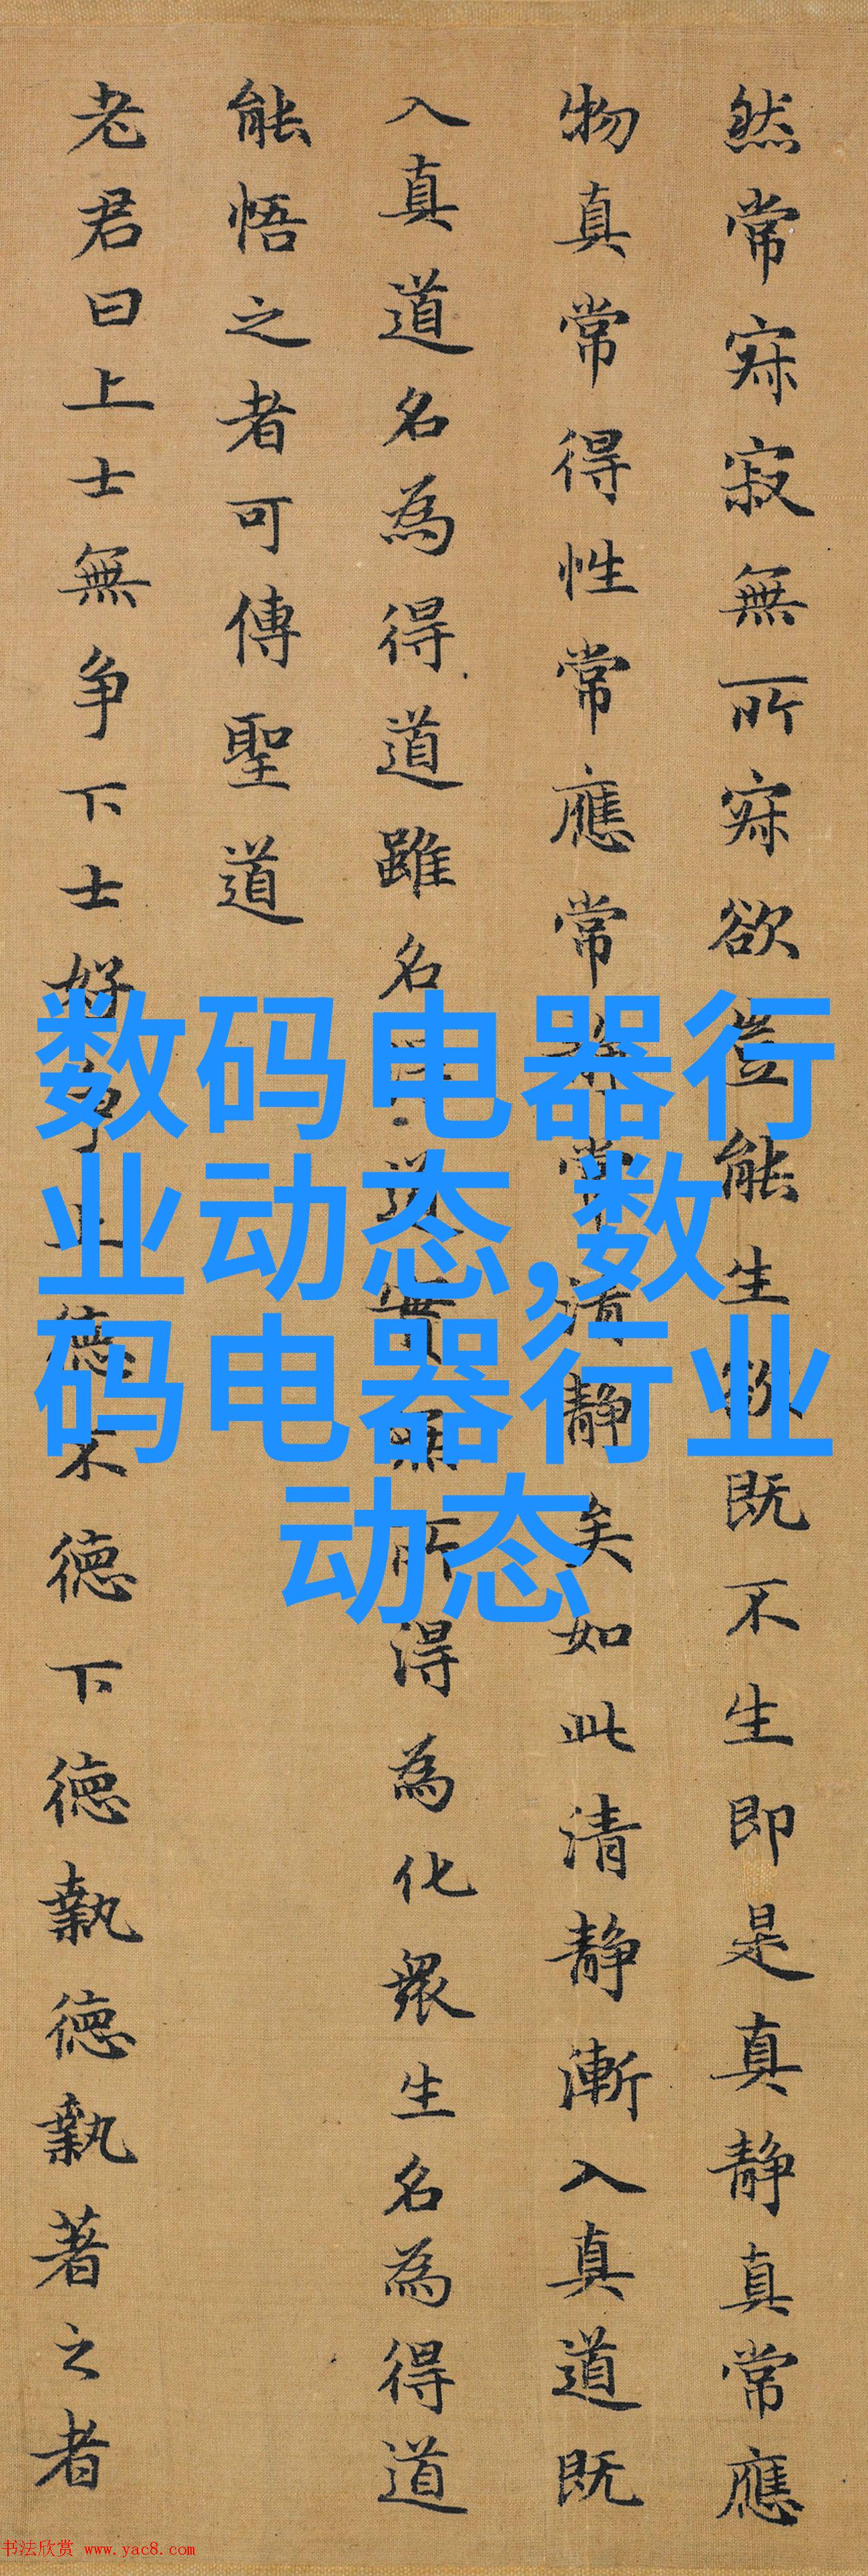 然常寂寂無所寂欲豈能生欲既不生即是真静真常應
物真常得性常應常静常清静矣如此清静漸入真道既
入真道名為得道雖名得道實無所得為化衆生名為得道
能悟之者可傳聖道
老君曰上士無争下士好争上德不德下德執德執著之者
数码电器行
业动态,数
码电器行业
动态
书法欣赏 www.yac8.com